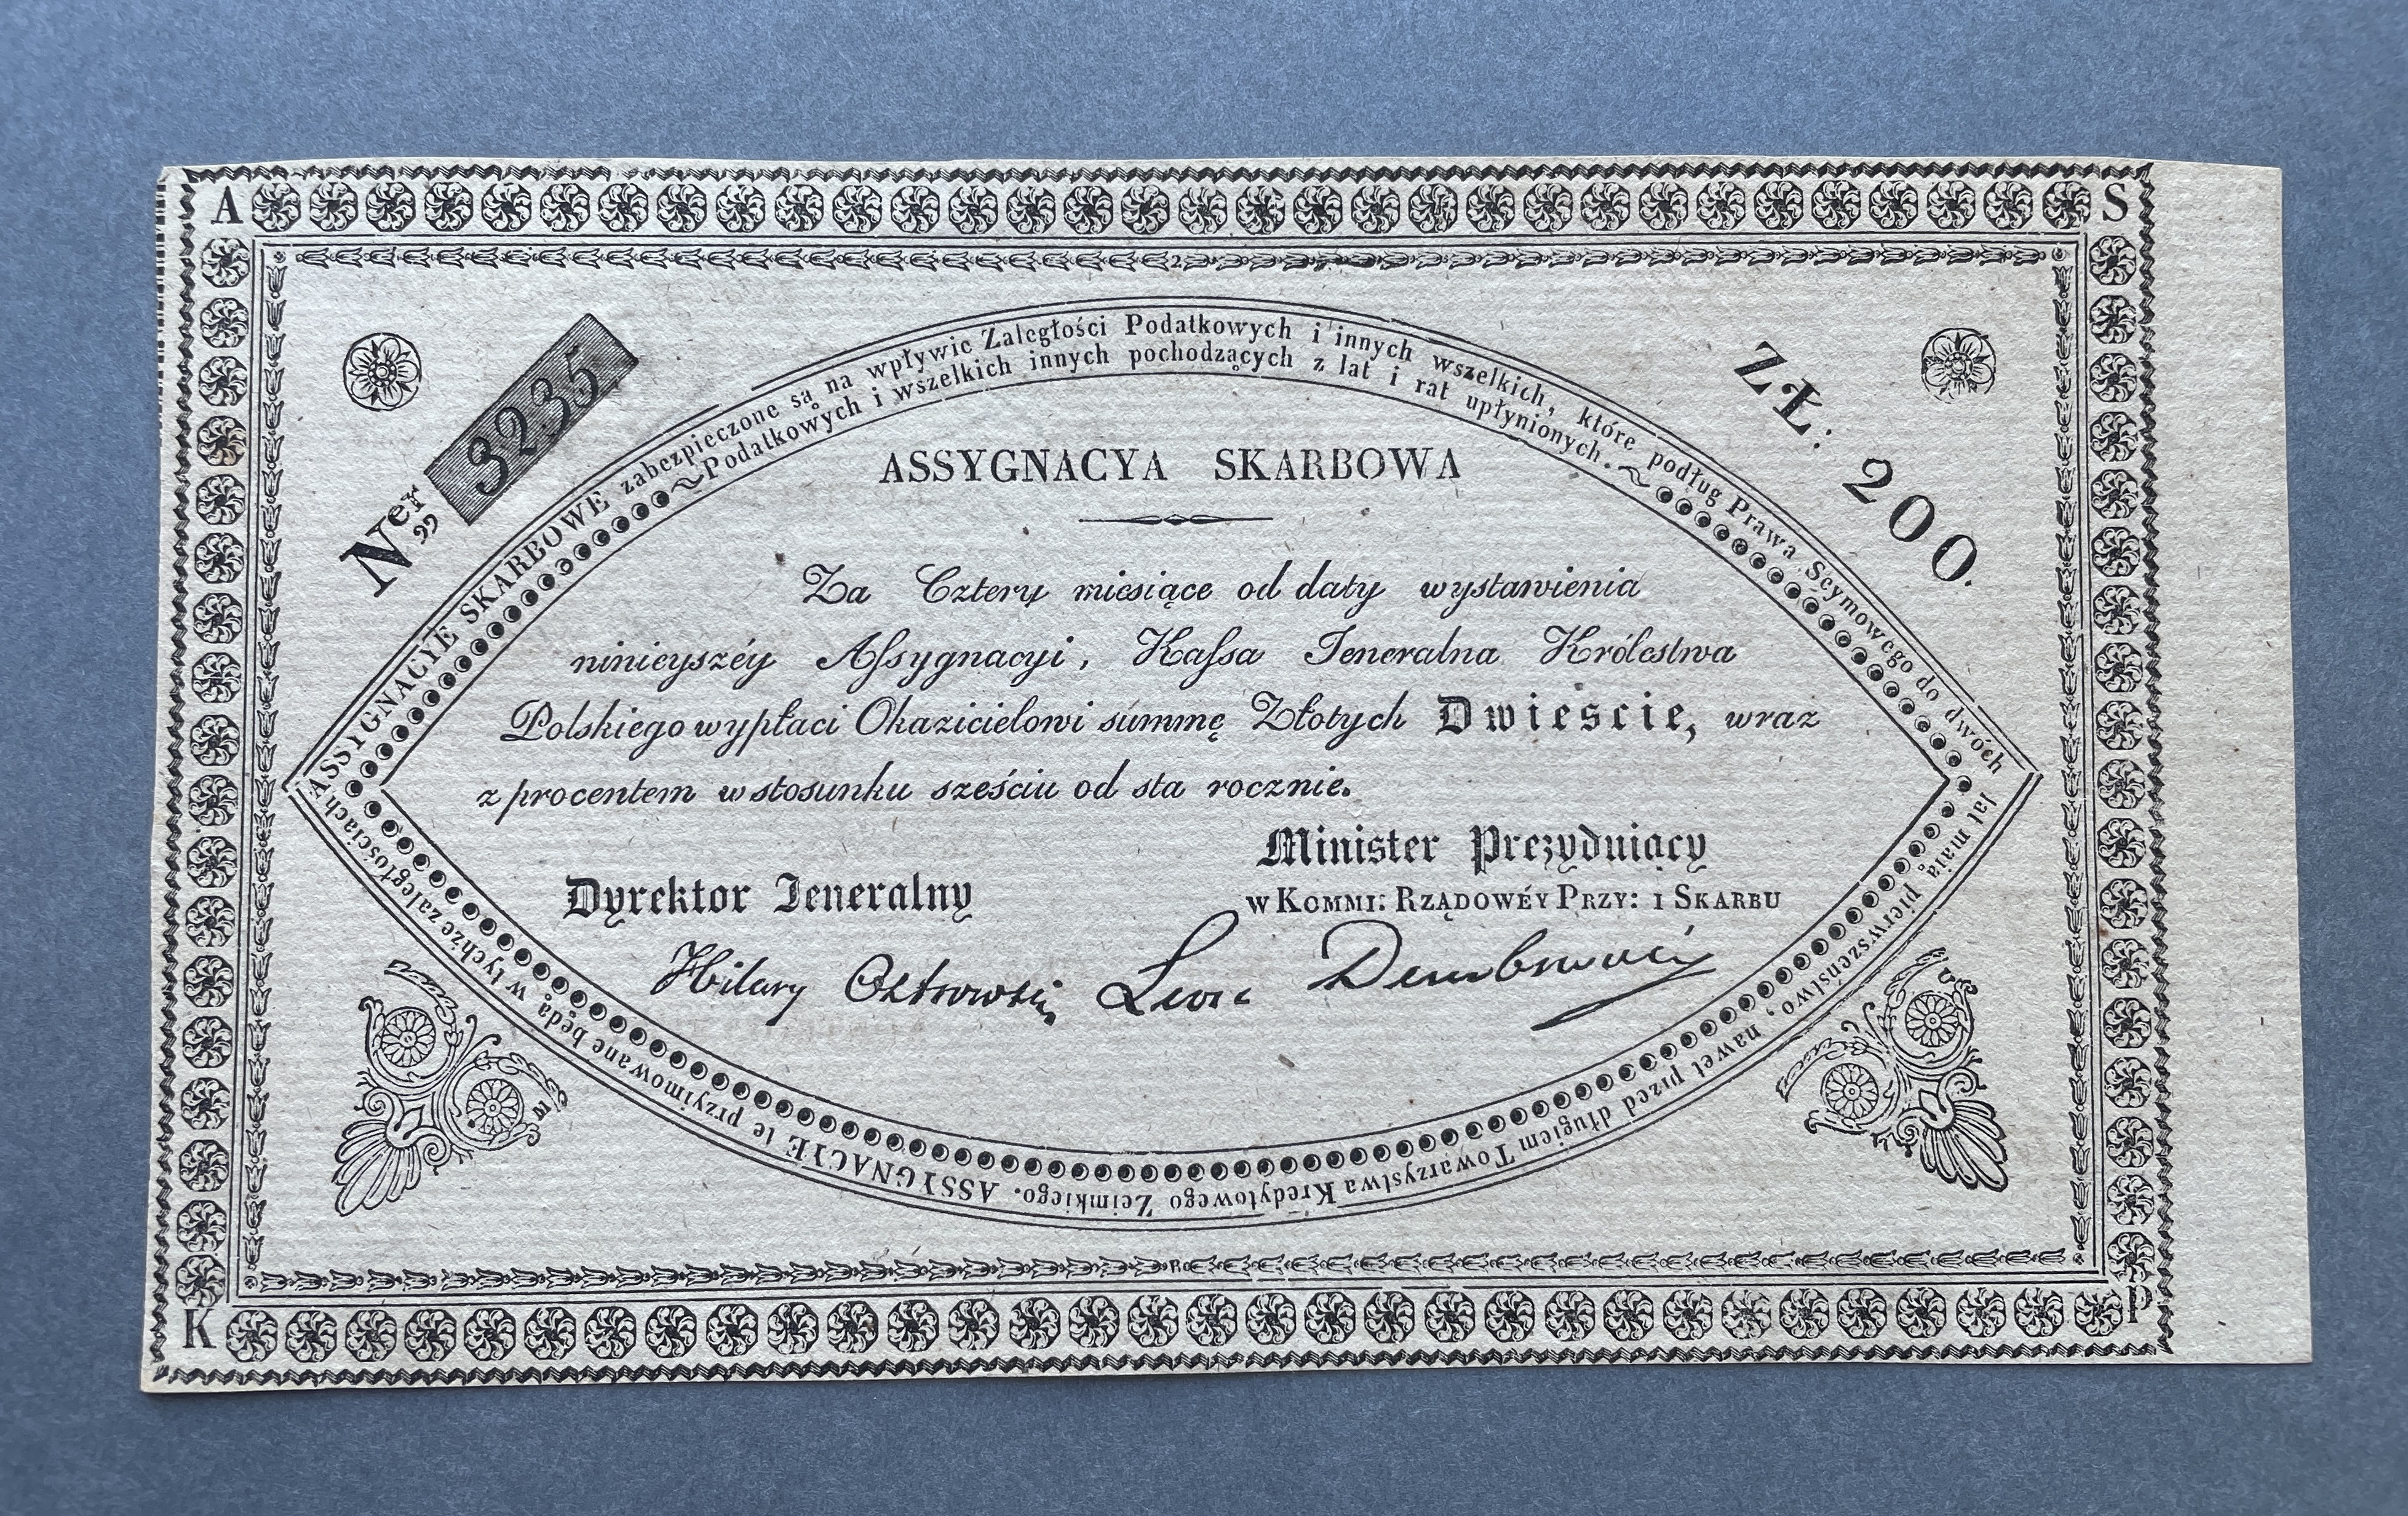 A
S
Ner„ 3235
ZŁ: 200.
ASSYGNACYE SKARBOWE zabezpieczone są na wpływie Zaległości Podatkowych i innych wszelkich, które podług Prawa Seymowego do dwóch
lat maią pierwszeństwo, nawet przed długiem Towarzystwa Kredytowego Zeimkiego. ASSYGNACYE te przyimowane będą w tychże zaległościach
Podatkowych i wszelkich innych pochodzących z lat i rat upłynionych.
ASSYGNACYA SKARBOWA
Za Cztery miesiące od daty wystawienia
ninieyszéy Assygnacyi, Kassa Jeneralna Królestwa
Polskiego wypłaci Okazicielowi summę Złotych Dwieście, wraz
z procentem w stosunku sześciu od sta rocznie.
Minister Prezyduiący
w Kommi: Rządowéy Przy: i Skarbu
Dyrektor Jeneralny
Hilary Ostrowski
Leon Dembowski
K
P